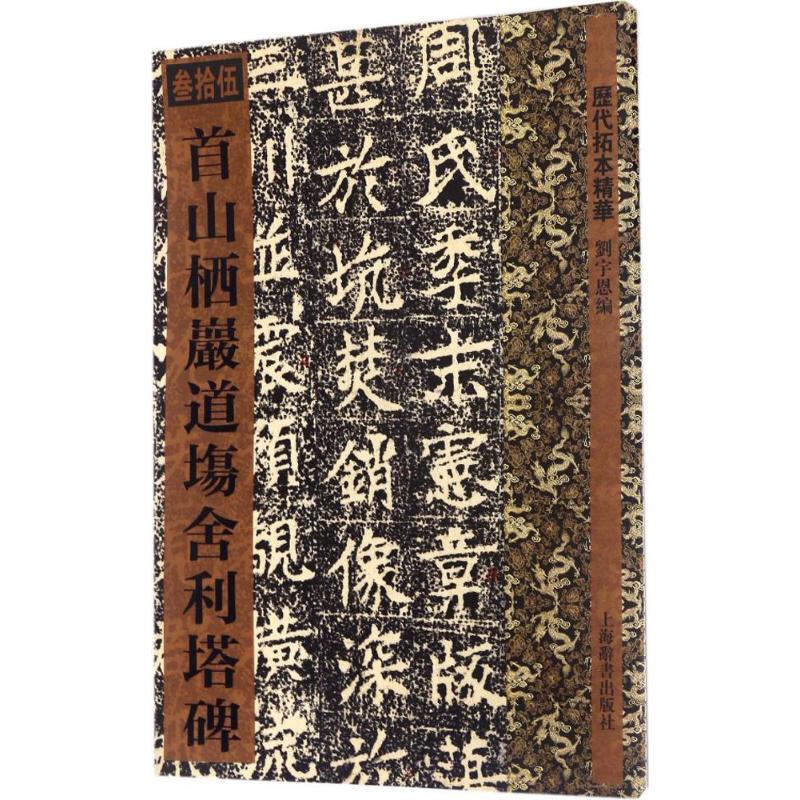 歷代拓本精華
劉宇恩編
上海辭書出版社
周氏季末憲章版
甚於坑焚銷像深於
三川並震
叁拾伍
首山栖巖道塲舍利塔碑